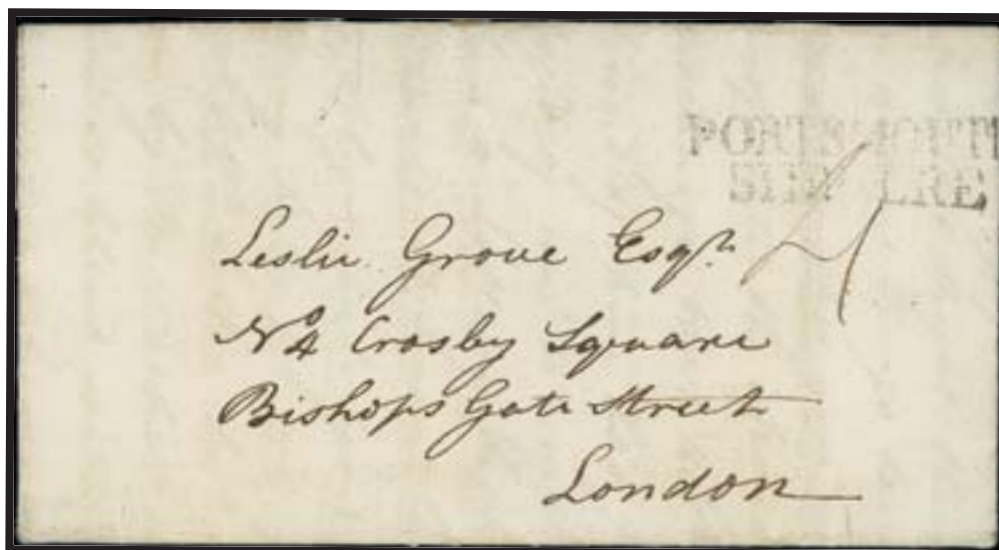 PORTSMOUTH
SHIP LRE
4
Leslie Grove Esqr.
No 4 Crosby Square
Bishops Gate Street
London